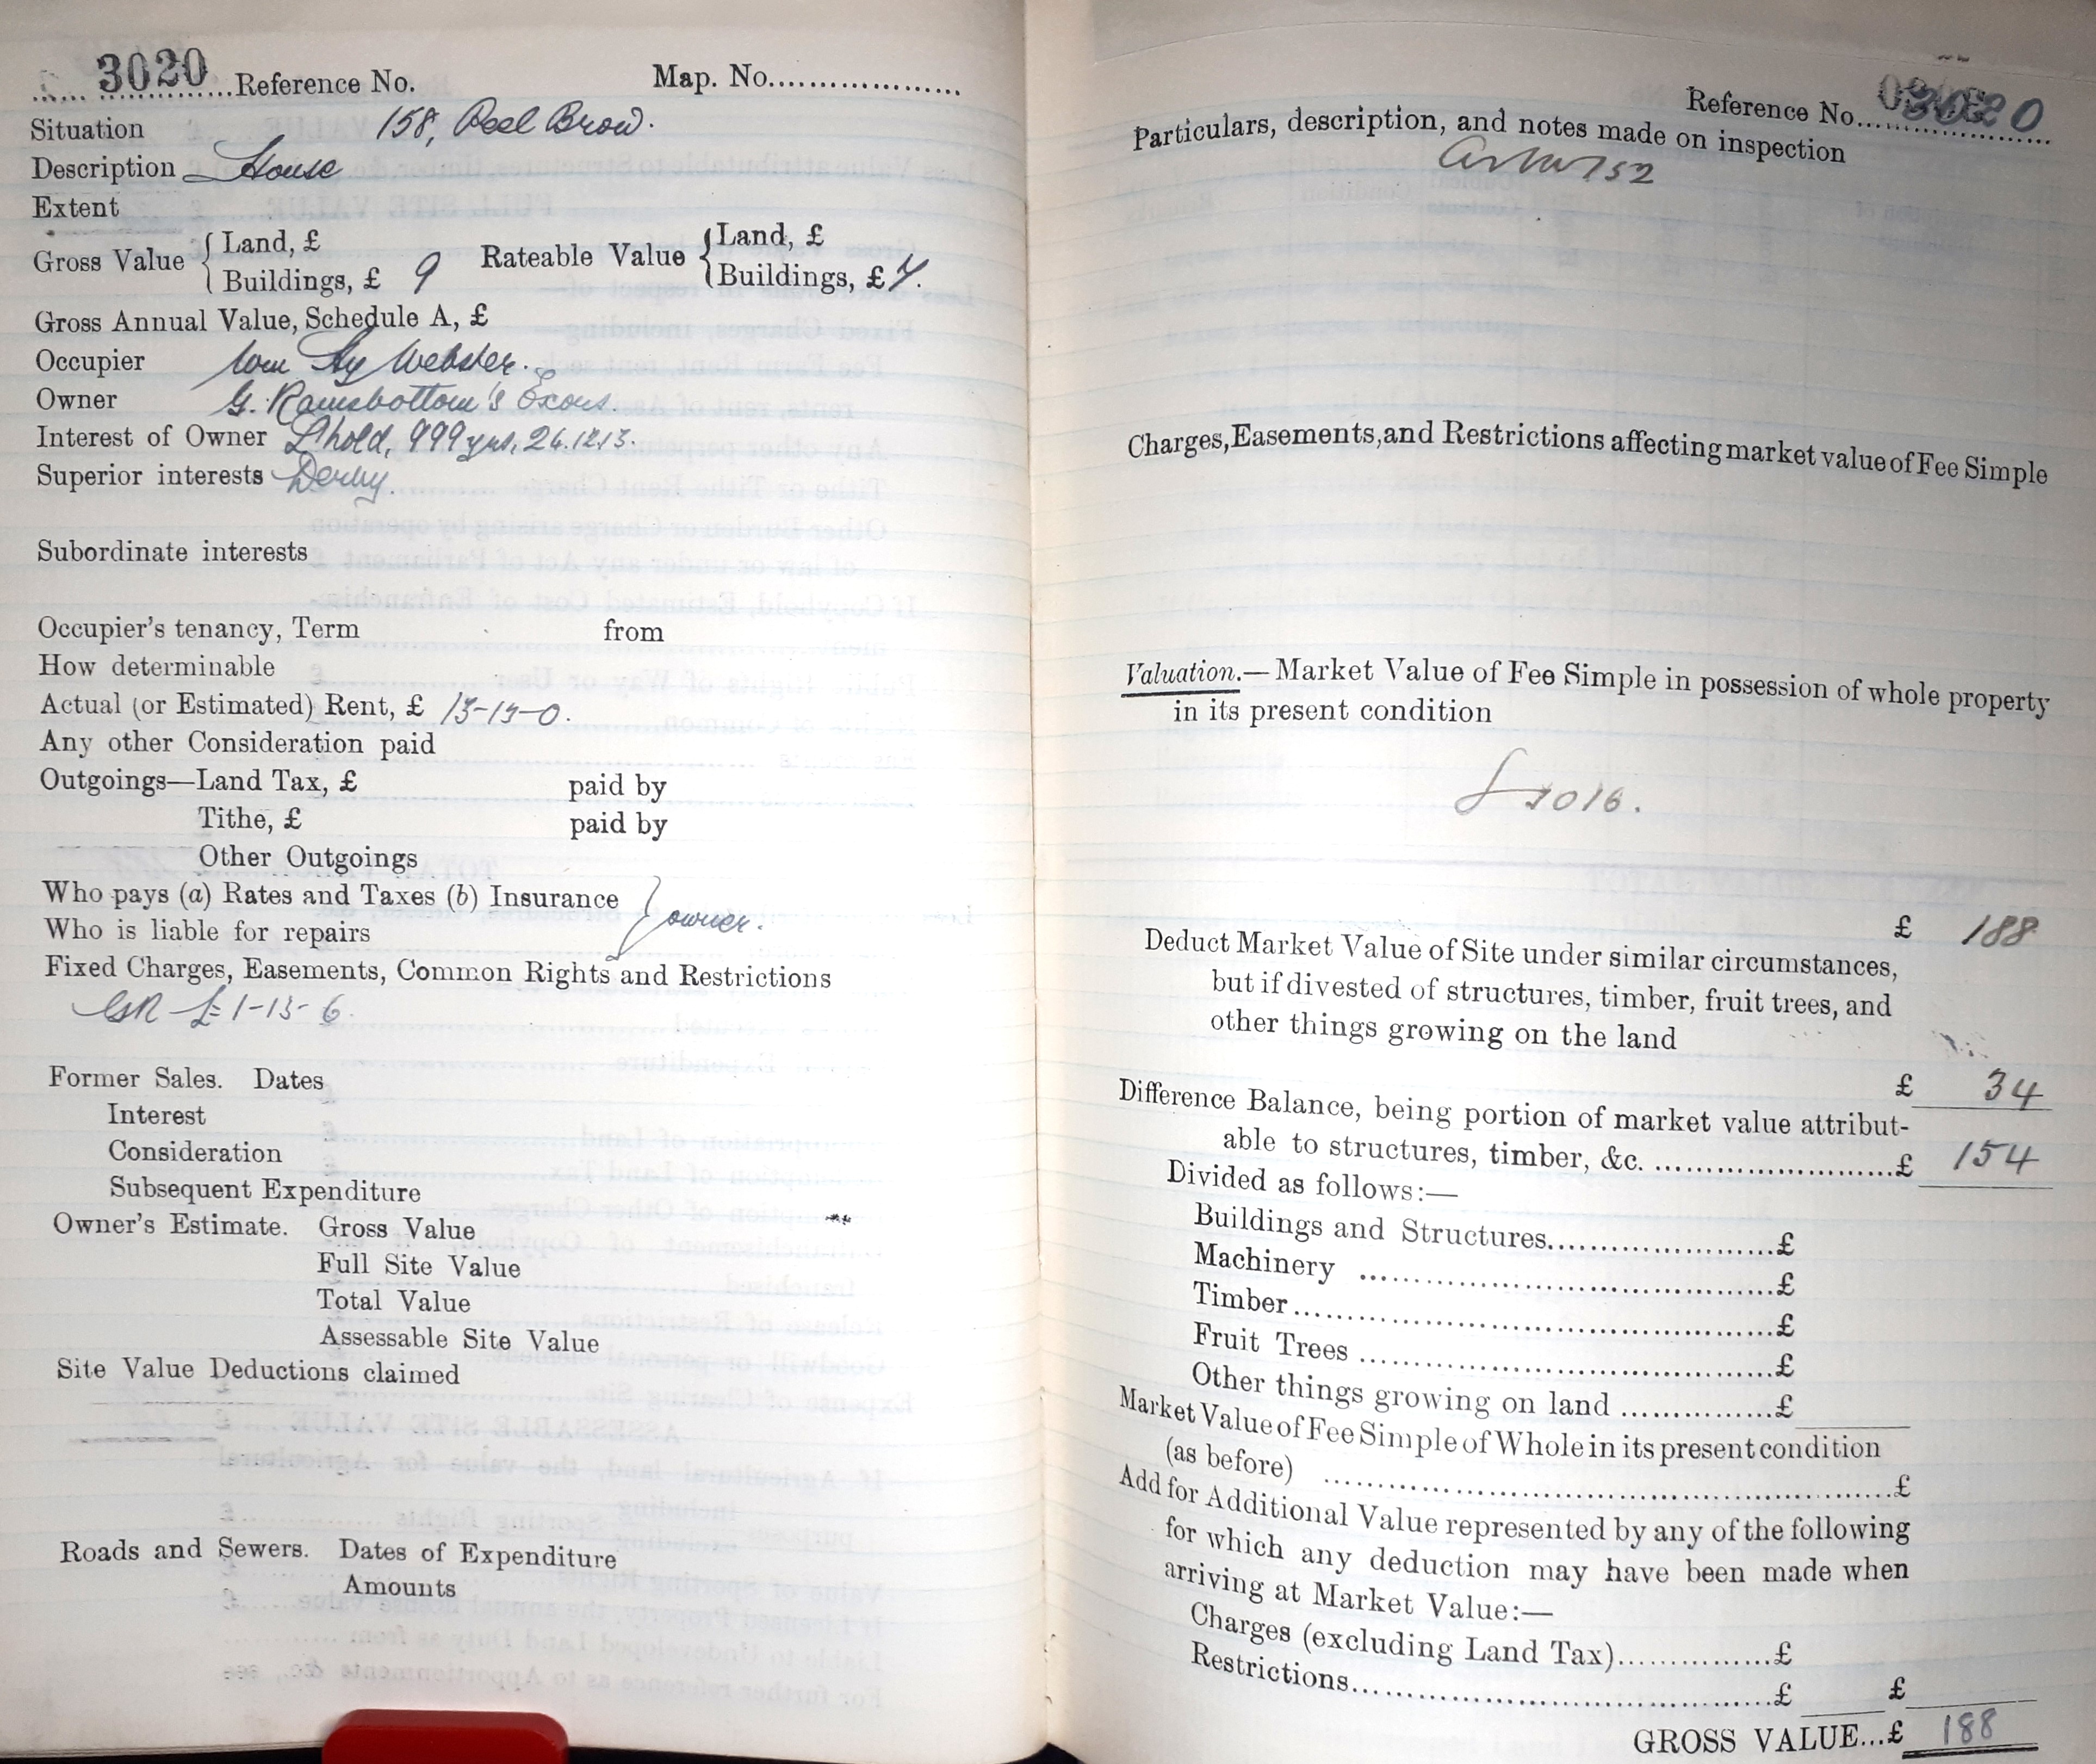 3020 Reference No. Map. No.
Situation 158, Peel Brow.
Description House
Extent
Gross Value { Land, £ Rateable Value { Land, £
Buildings, £ 9 Buildings, £ 7.
Gross Annual Value, Schedule A, £
Occupier Wm Hy Webster.
Owner G. Ramsbottom's Exors.
Interest of Owner L'hold, 999 yrs,
Superior interests Derby.
Subordinate interests
Occupier's tenancy, Term from
How determinable
Actual (or Estimated) Rent, £ 13-13-0.
Any other Consideration paid
Outgoings—Land Tax, £ paid by
Tithe, £ paid by
Other Outgoings
Who pays (a) Rates and Taxes (b) Insurance } owner.
Who is liable for repairs
Fixed Charges, Easements, Common Rights and Restrictions
GR £1-13-6.
Former Sales. Dates
Interest
Consideration
Subsequent Expenditure
Owner's Estimate. Gross Value
Full Site Value
Total Value
Assessable Site Value
Site Value Deductions claimed
Roads and Sewers. Dates of Expenditure
Amounts
Reference No. 3020
Particulars, description, and notes made on inspection
as no 152
Charges, Easements, and Restrictions affecting market value of Fee Simple
Valuation.—Market Value of Fee Simple in possession of whole property
in its present condition
£ 188
Deduct Market Value of Site under similar circumstances,
but if divested of structures, timber, fruit trees, and
other things growing on the land
£ 34
Difference Balance, being portion of market value attribut-
able to structures, timber, &c. £ 154
Divided as follows:—
Buildings and Structures £
Machinery £
Timber £
Fruit Trees £
Other things growing on land £
Market Value of Fee Simple of Whole in its present condition
(as before) £
Add for Additional Value represented by any of the following
for which any deduction may have been made when
arriving at Market Value:—
Charges (excluding Land Tax) £
Restrictions £ £
GROSS VALUE...£ 188